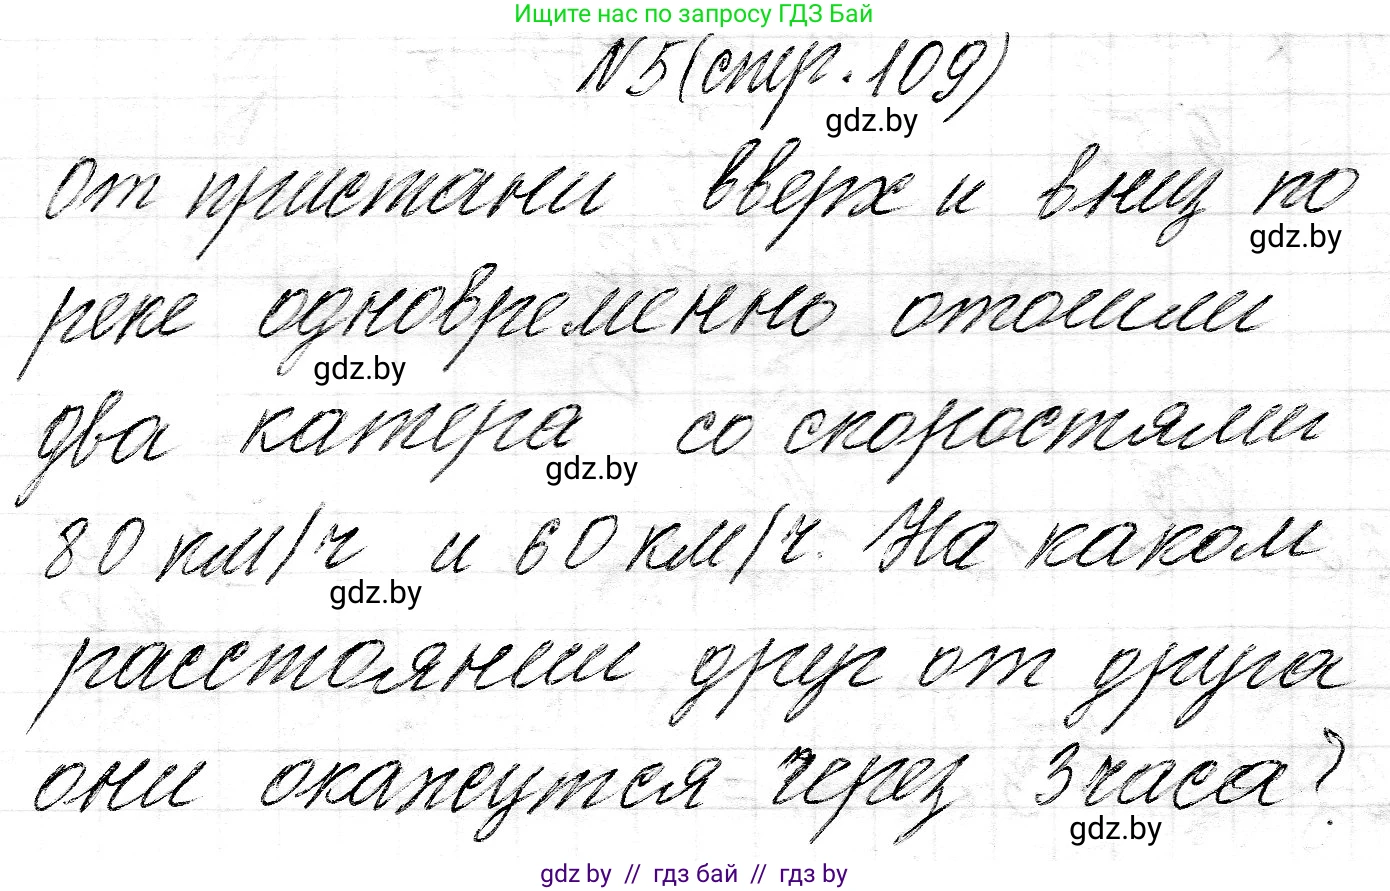 Ищите нас по запросу ГДЗ Бай
N5 (стр. 109)
gdz.by
От пристани вверх и вниз по
gdz.by
реке одновременно отошли
gdz.by
два катера со скоростями
gdz.by
80 км/ч и 60 км/ч. На каком
gdz.by
расстоянии друг от друга
они окажутся через 3 часа?
gdz.by
gdz by // гдз бай // гдз by